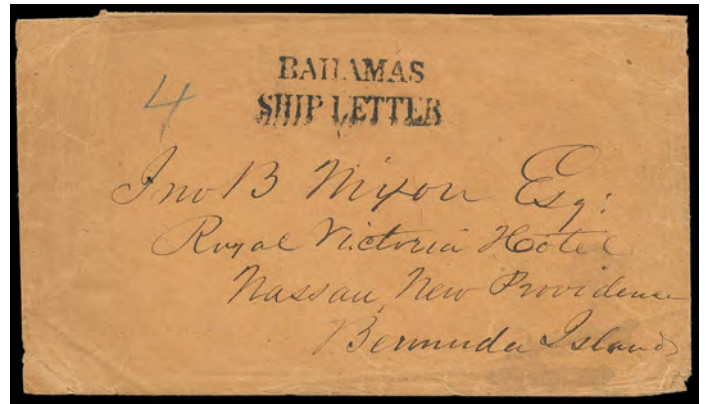 BAHAMAS
SHIP LETTER
4
Jno B Nixon Esq:
Royal Victoria Hotel
Nassau, New Providence
Bermuda Island